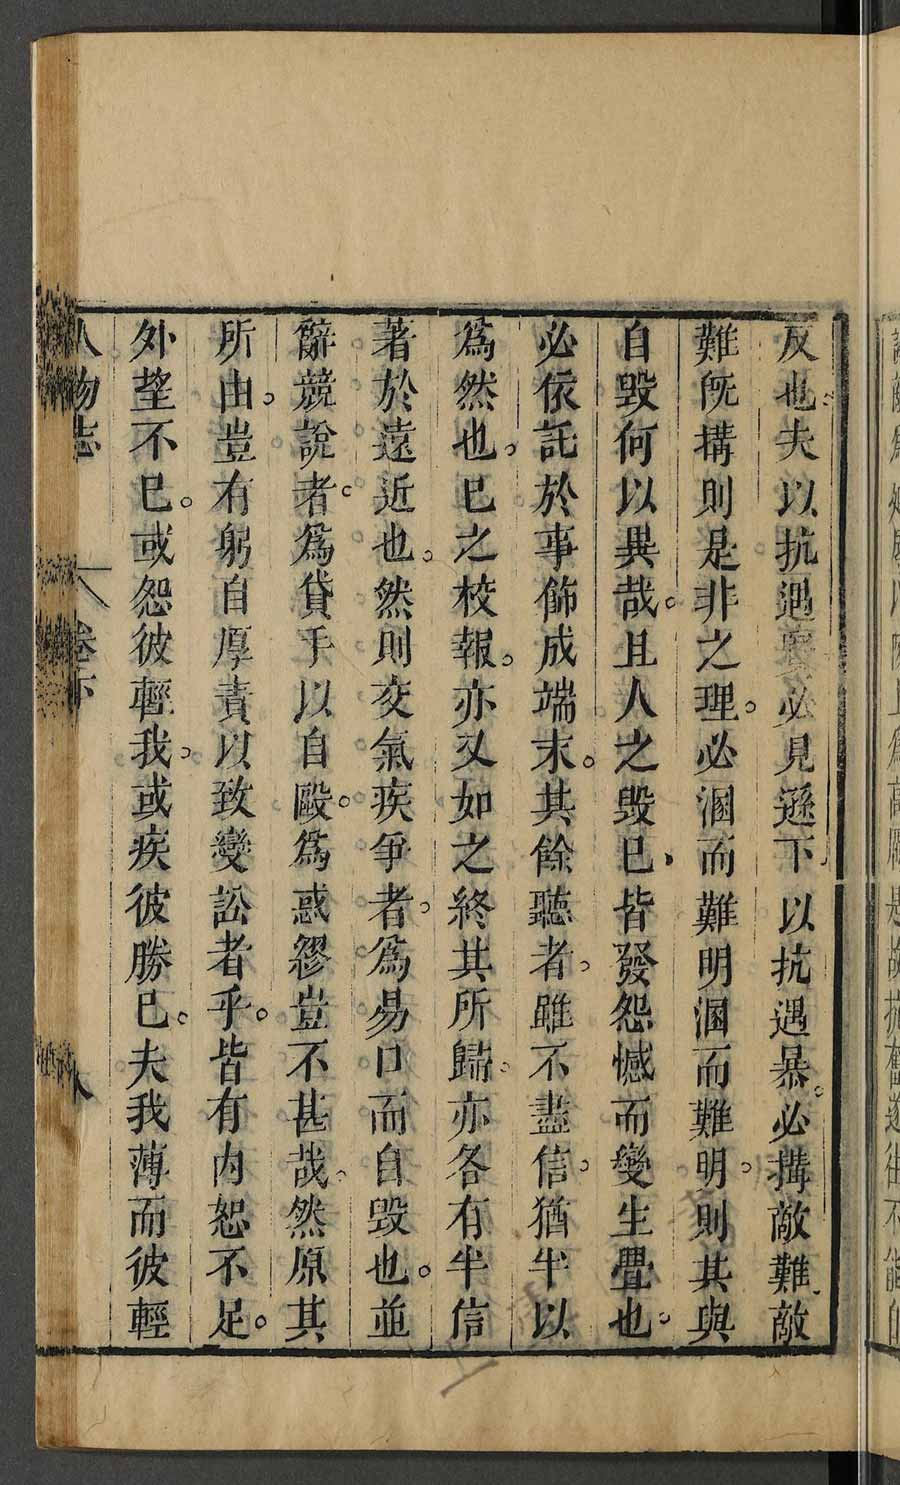 反也。夫以抗遇賢必見遜下以抗遇暴。必搆敵難敵
難旣搆則是非之理。必溷而難明溷而難明。則其與
自毀何以異哉。且人之毀己皆發怨憾而變生疊也。
必依託於事飾成端末。其餘聽者。雖不盡信。猶半以
爲然也。已之校報。亦又如之終其所歸。亦各有半信
著於遠近也。然則交氣疾爭者。爲易口而自毀也。並
辭競說者。爲貸手以自毆。爲惑繆豈不甚哉。然原其
所由。豈有躬自厚責以致變訟者乎。皆有內恕不足。
外望不已。或怨彼輕我。或疾彼勝已。夫我薄而彼輕
人物志 卷下